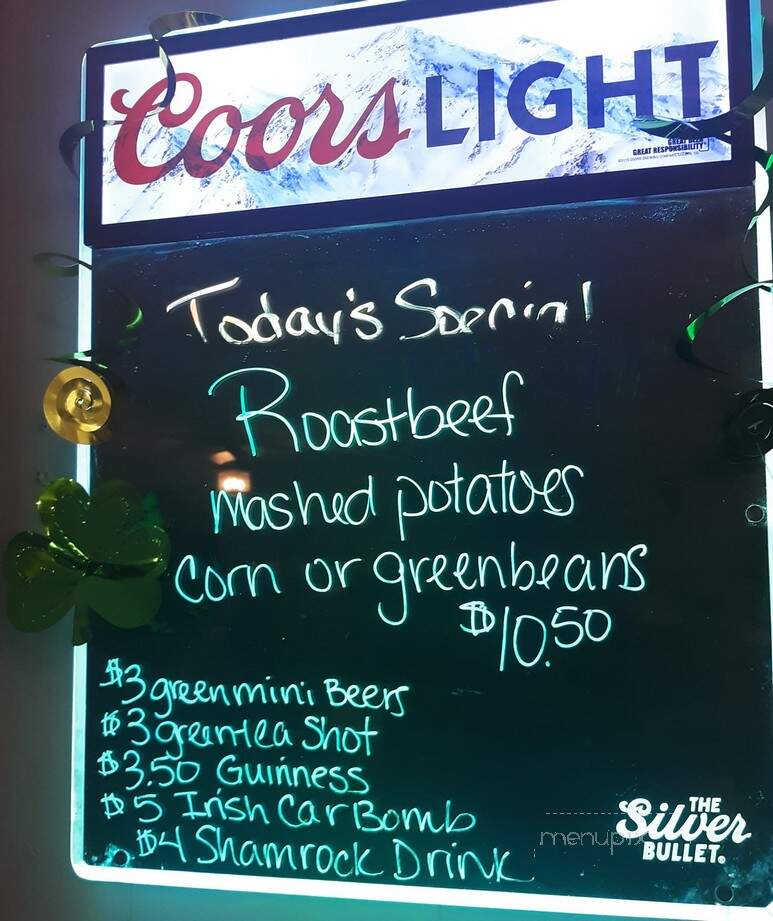 Coors LIGHT
GREAT BEER
GREAT RESPONSIBILITY
Today's Special
Roastbeef
mashed potatoes
corn or greenbeans
$10.50
$3 greenmini Beers
$3 greentea Shot
$3.50 Guinness
$5 Irish Car Bomb
$4 Shamrock Drink
THE
Silver
BULLET.
menupix